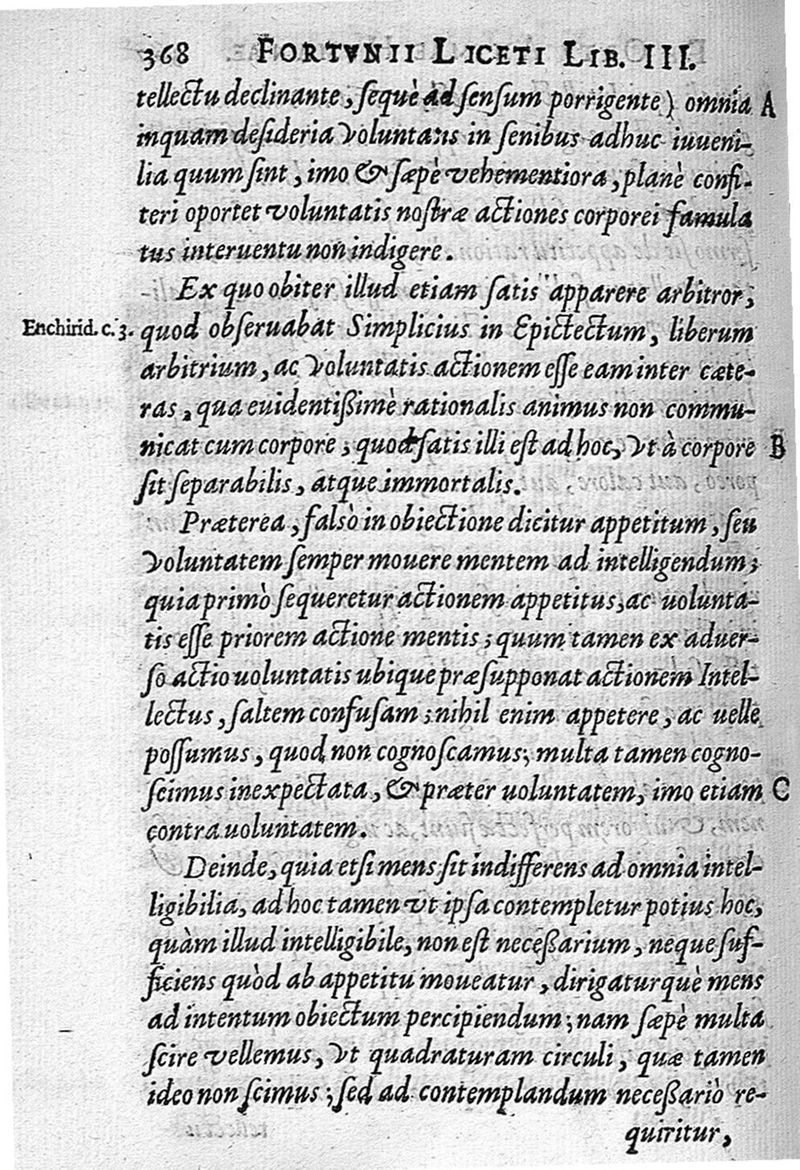 368 FORTVNII LICETI LIB. III.
tellectu declinante, ſequè ad ſenſum porrigente) omnia A
inquam deſideria voluntatis in ſenibus adhuc iuueni-
lia quum ſint, imo & ſæpè vehementiora, planè confi-
teri oportet voluntatis noſtræ actiones corporei famula
tus interuentu non indigere.
Ex quo obiter illud etiam ſatis apparere arbitror,
Enchirid. c. 3. quod obſeruabat Simplicius in Epictectum, liberum
arbitrium, ac voluntatis actionem eſſe eam inter cæte-
ras, qua euidentißimè rationalis animus non commu-
nicat cum corpore, quod ſatis illi eſt ad hoc, vt à corpore B
ſit ſeparabilis, atque immortalis.
Præterea, falsò in obiectione dicitur appetitum, ſeu
voluntatem ſemper mouere mentem ad intelligendum;
quia primò ſequeretur actionem appetitus, ac uolunta-
tis eſſe priorem actione mentis; quum tamen ex aduer-
ſo actio uoluntatis ubique præſupponat actionem Intel-
lectus, ſaltem confuſam; nihil enim appetere, ac uelle
poſſumus, quod non cognoſcamus; multa tamen cogno-
ſcimus inexpectata, & præter uoluntatem, imo etiam C
contra uoluntatem.
Deinde, quia etſi mens ſit indifferens ad omnia intel-
ligibilia, ad hoc tamen vt ipſa contempletur potius hoc,
quàm illud intelligibile, non eſt neceßarium, neque ſuf-
ficiens quòd ab appetitu moueatur, dirigaturquè mens
ad intentum obiectum percipiendum; nam ſæpè multa
ſcire vellemus, vt quadraturam circuli, quæ tamen
ideo non ſcimus; ſed ad contemplandum neceßariò re-
quiritur,